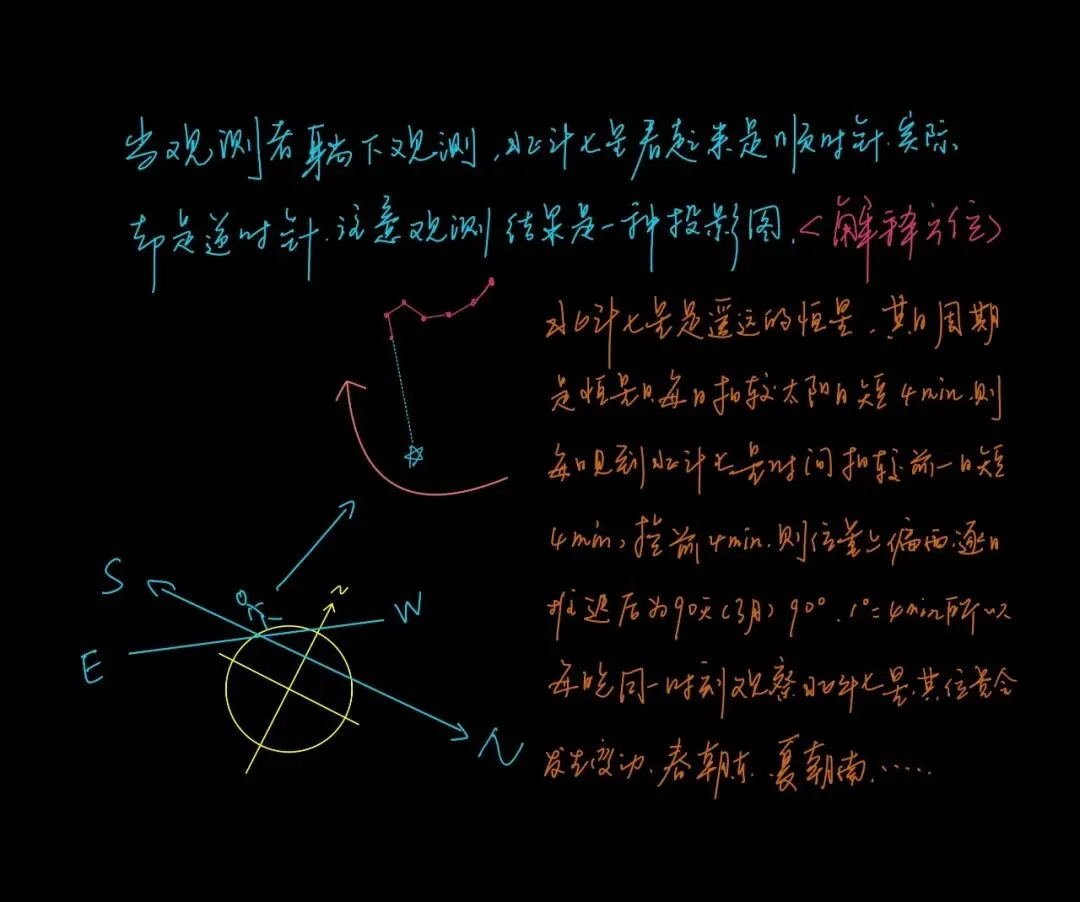 当观测者躺下观测，北斗七星看起来是顺时针.实际
却是逆时针.注意观测结果是一种投影图.<解释方位>
北斗七星是遥远的恒星，其日周期
是恒星日.每日相较太阳日短4min.则
每日见到北斗七星时间相较前一日短
4min,提前4min.则位置上偏西.逐日
推迟后为90天(3月)90°.1°=4min所以
每晚同一时刻观察北斗七星.其位置会
发生变动.春朝东.夏朝南.……
S
N
W
E
N